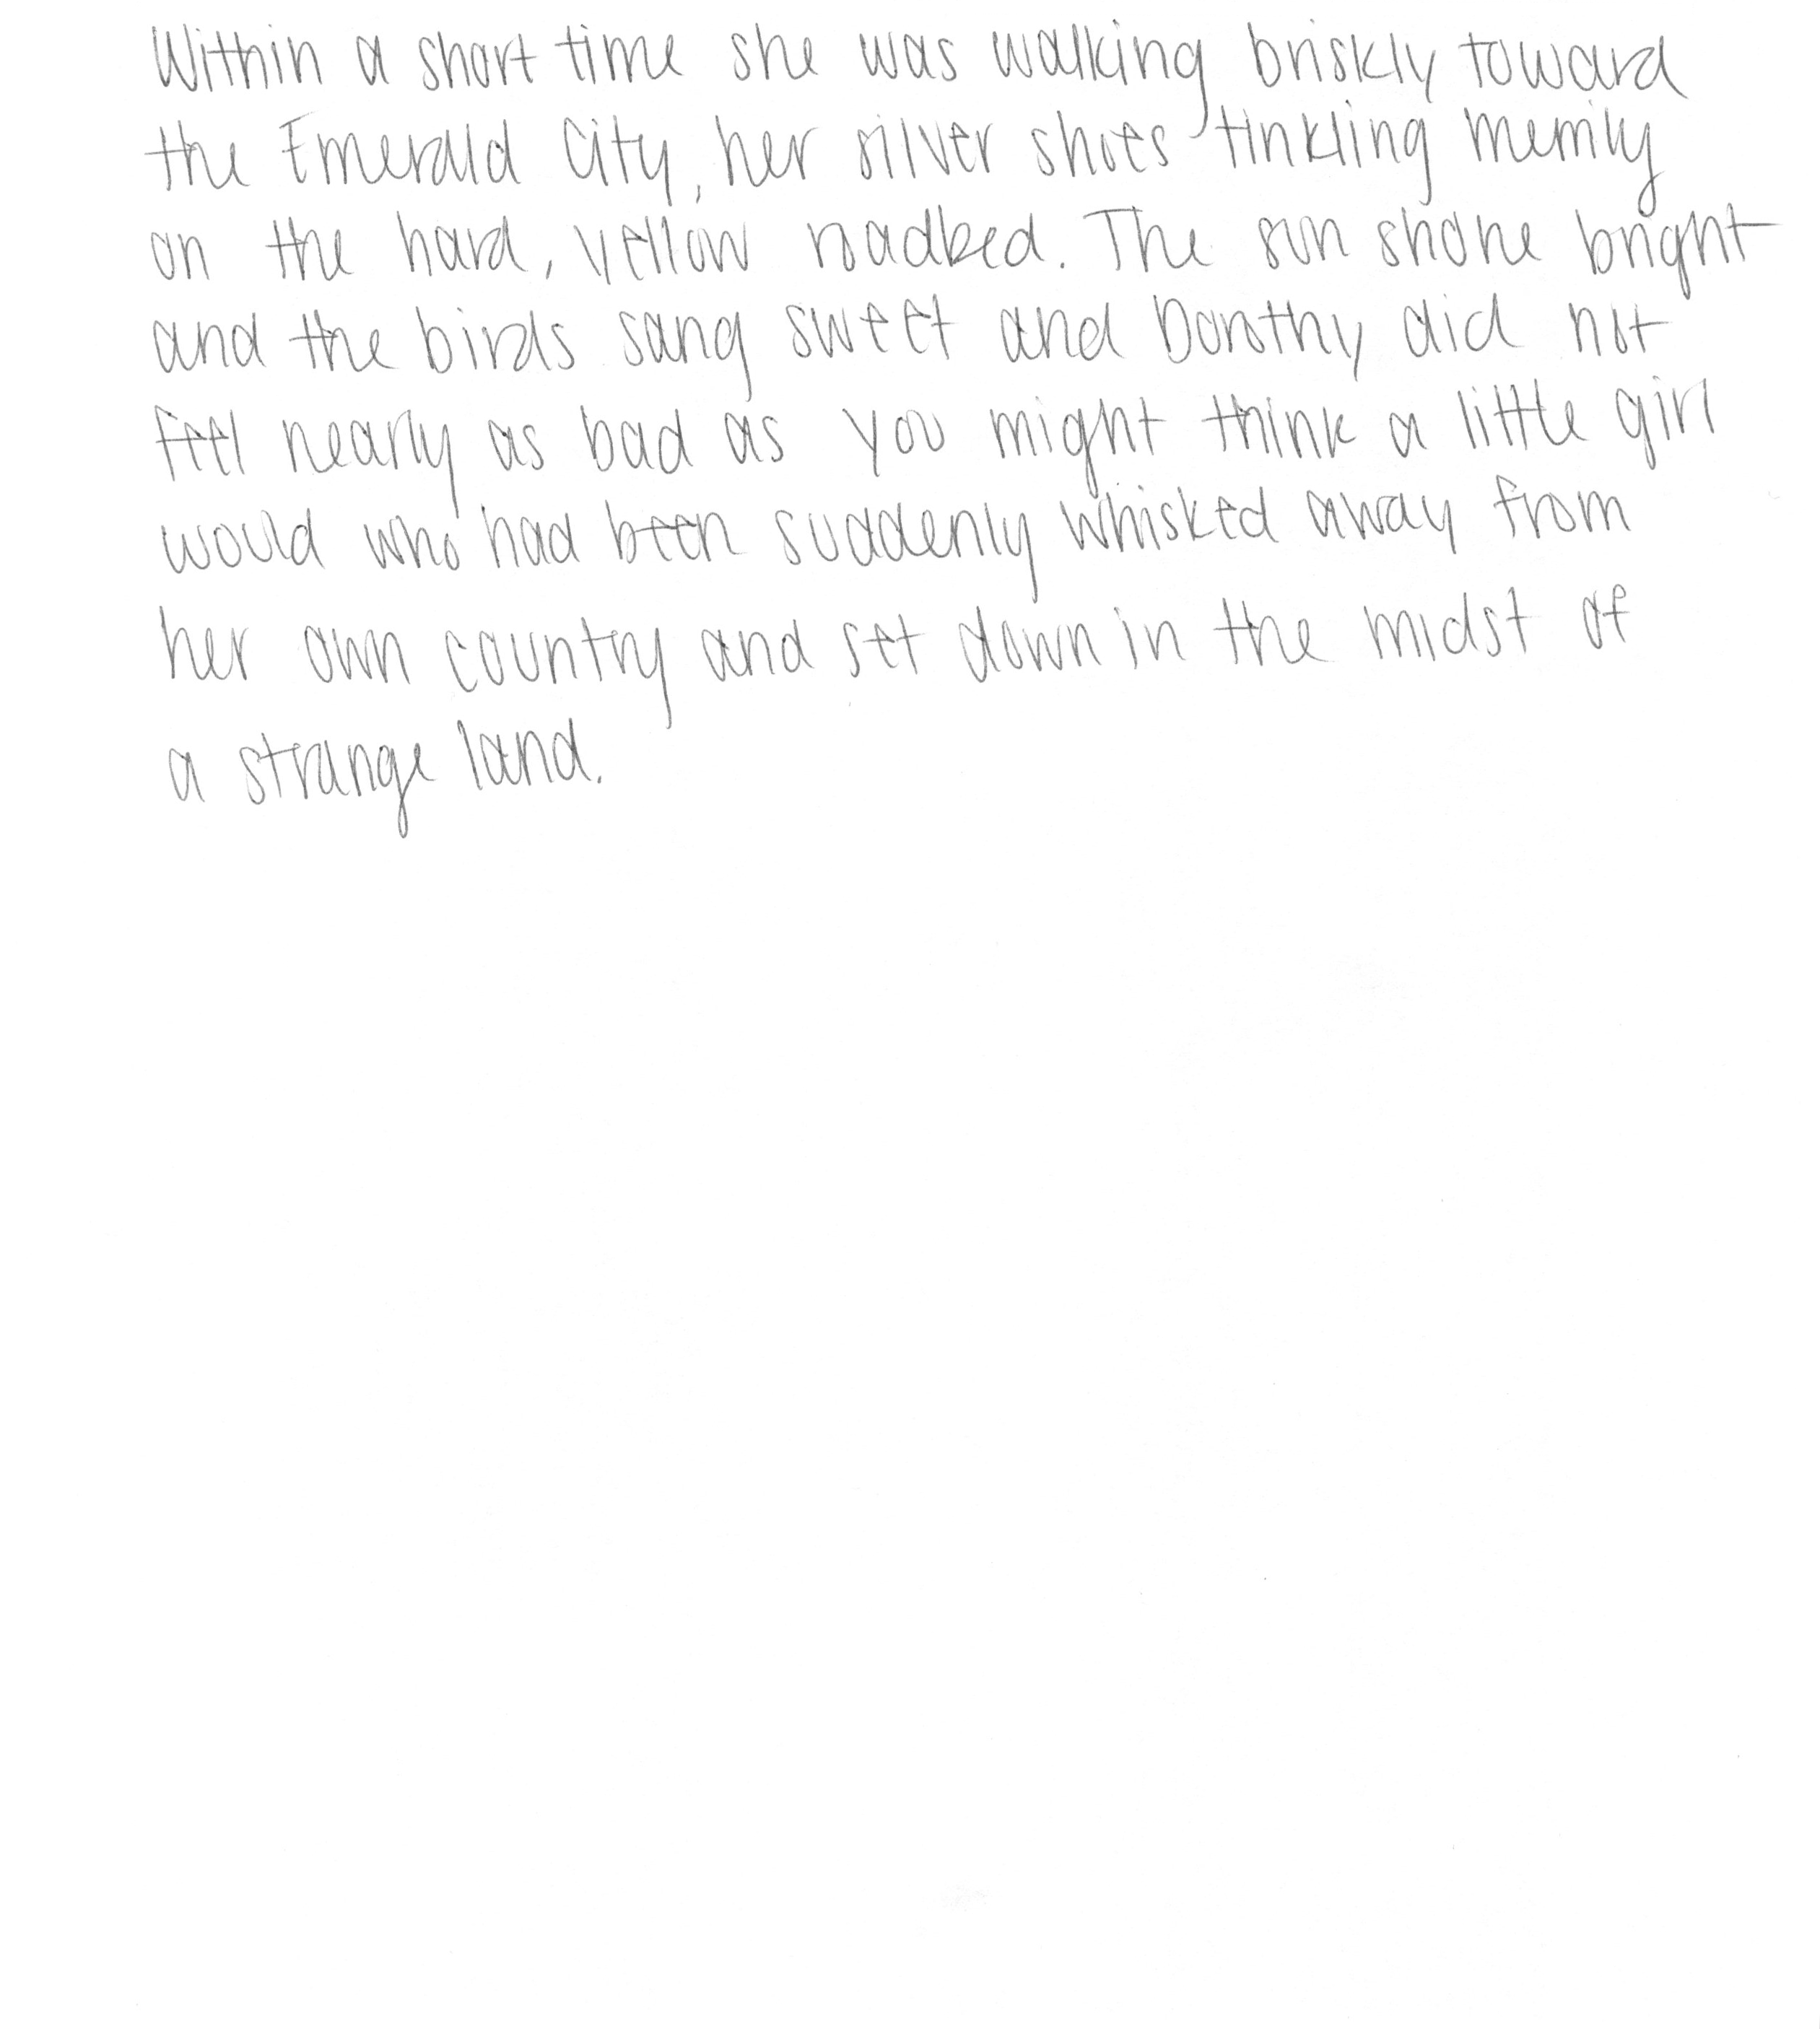 Within a short time she was walking briskly toward
the Emerald City, her silver shoes tinkling merrily
on the hard, yellow roadbed. The sun shone bright
and the birds sang sweet and Dorothy did not
feel nearly as bad as you might think a little girl
would who had been suddenly whisked away from
her own country and set down in the midst of
a strange land.